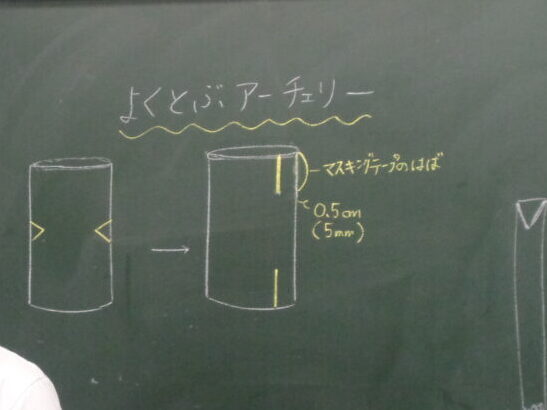 よくとぶアーチェリー
マスキングテープのはば
0.5cm
(5mm)